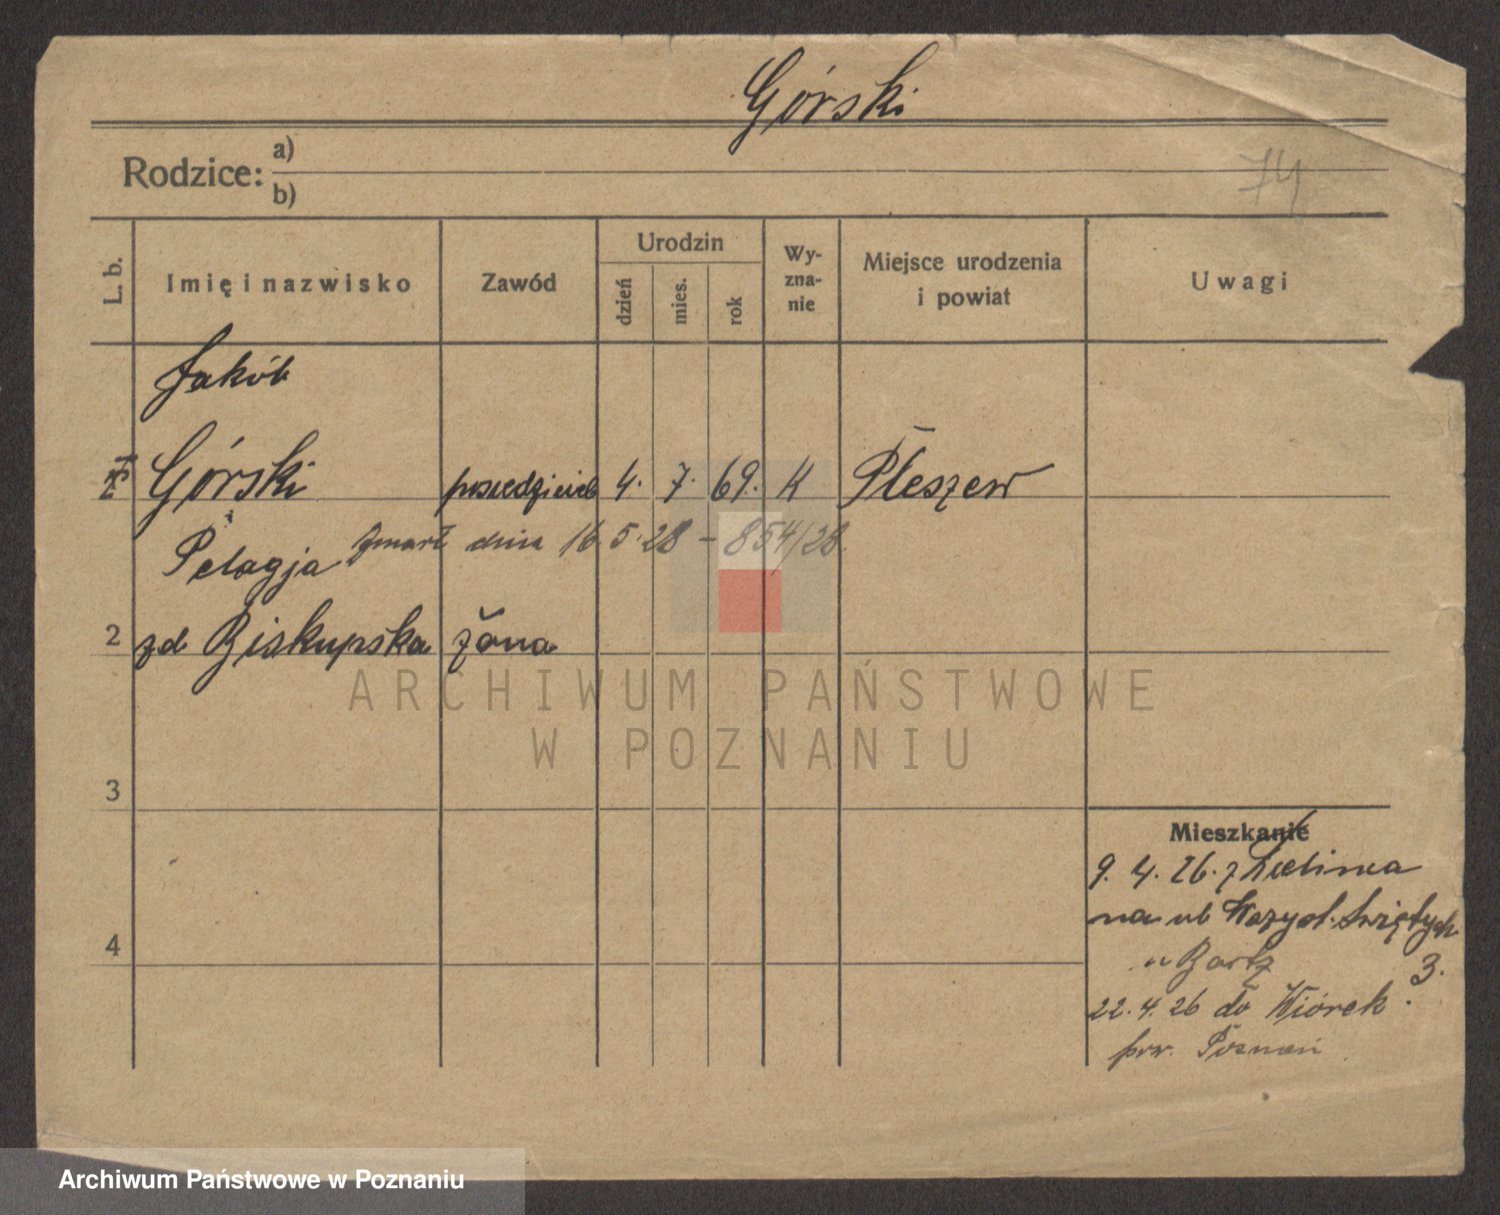 Górski
74
Rodzice: a)
b)
L. b.
Imię i nazwisko
Zawód
Urodzin
dzień
mies.
rok
Wy-
zna-
nie
Miejsce urodzenia
i powiat
Uwagi
Jakób
Górski posiedziciel 4. 7. 69. K Pleszew
zmarł dnia 16.5.28 - 854/28.
Pelagja
2 zd Biskupska żona
ARCHIWUM PAŃSTWOWE
W POZNANIU
3
4
Mieszkanie
9. 4. 26. z
na ul Wszyst. Świętych
u Bartz 3.
22.4.26 do Wiórek.
pow. Poznań
Archiwum Państwowe w Poznaniu